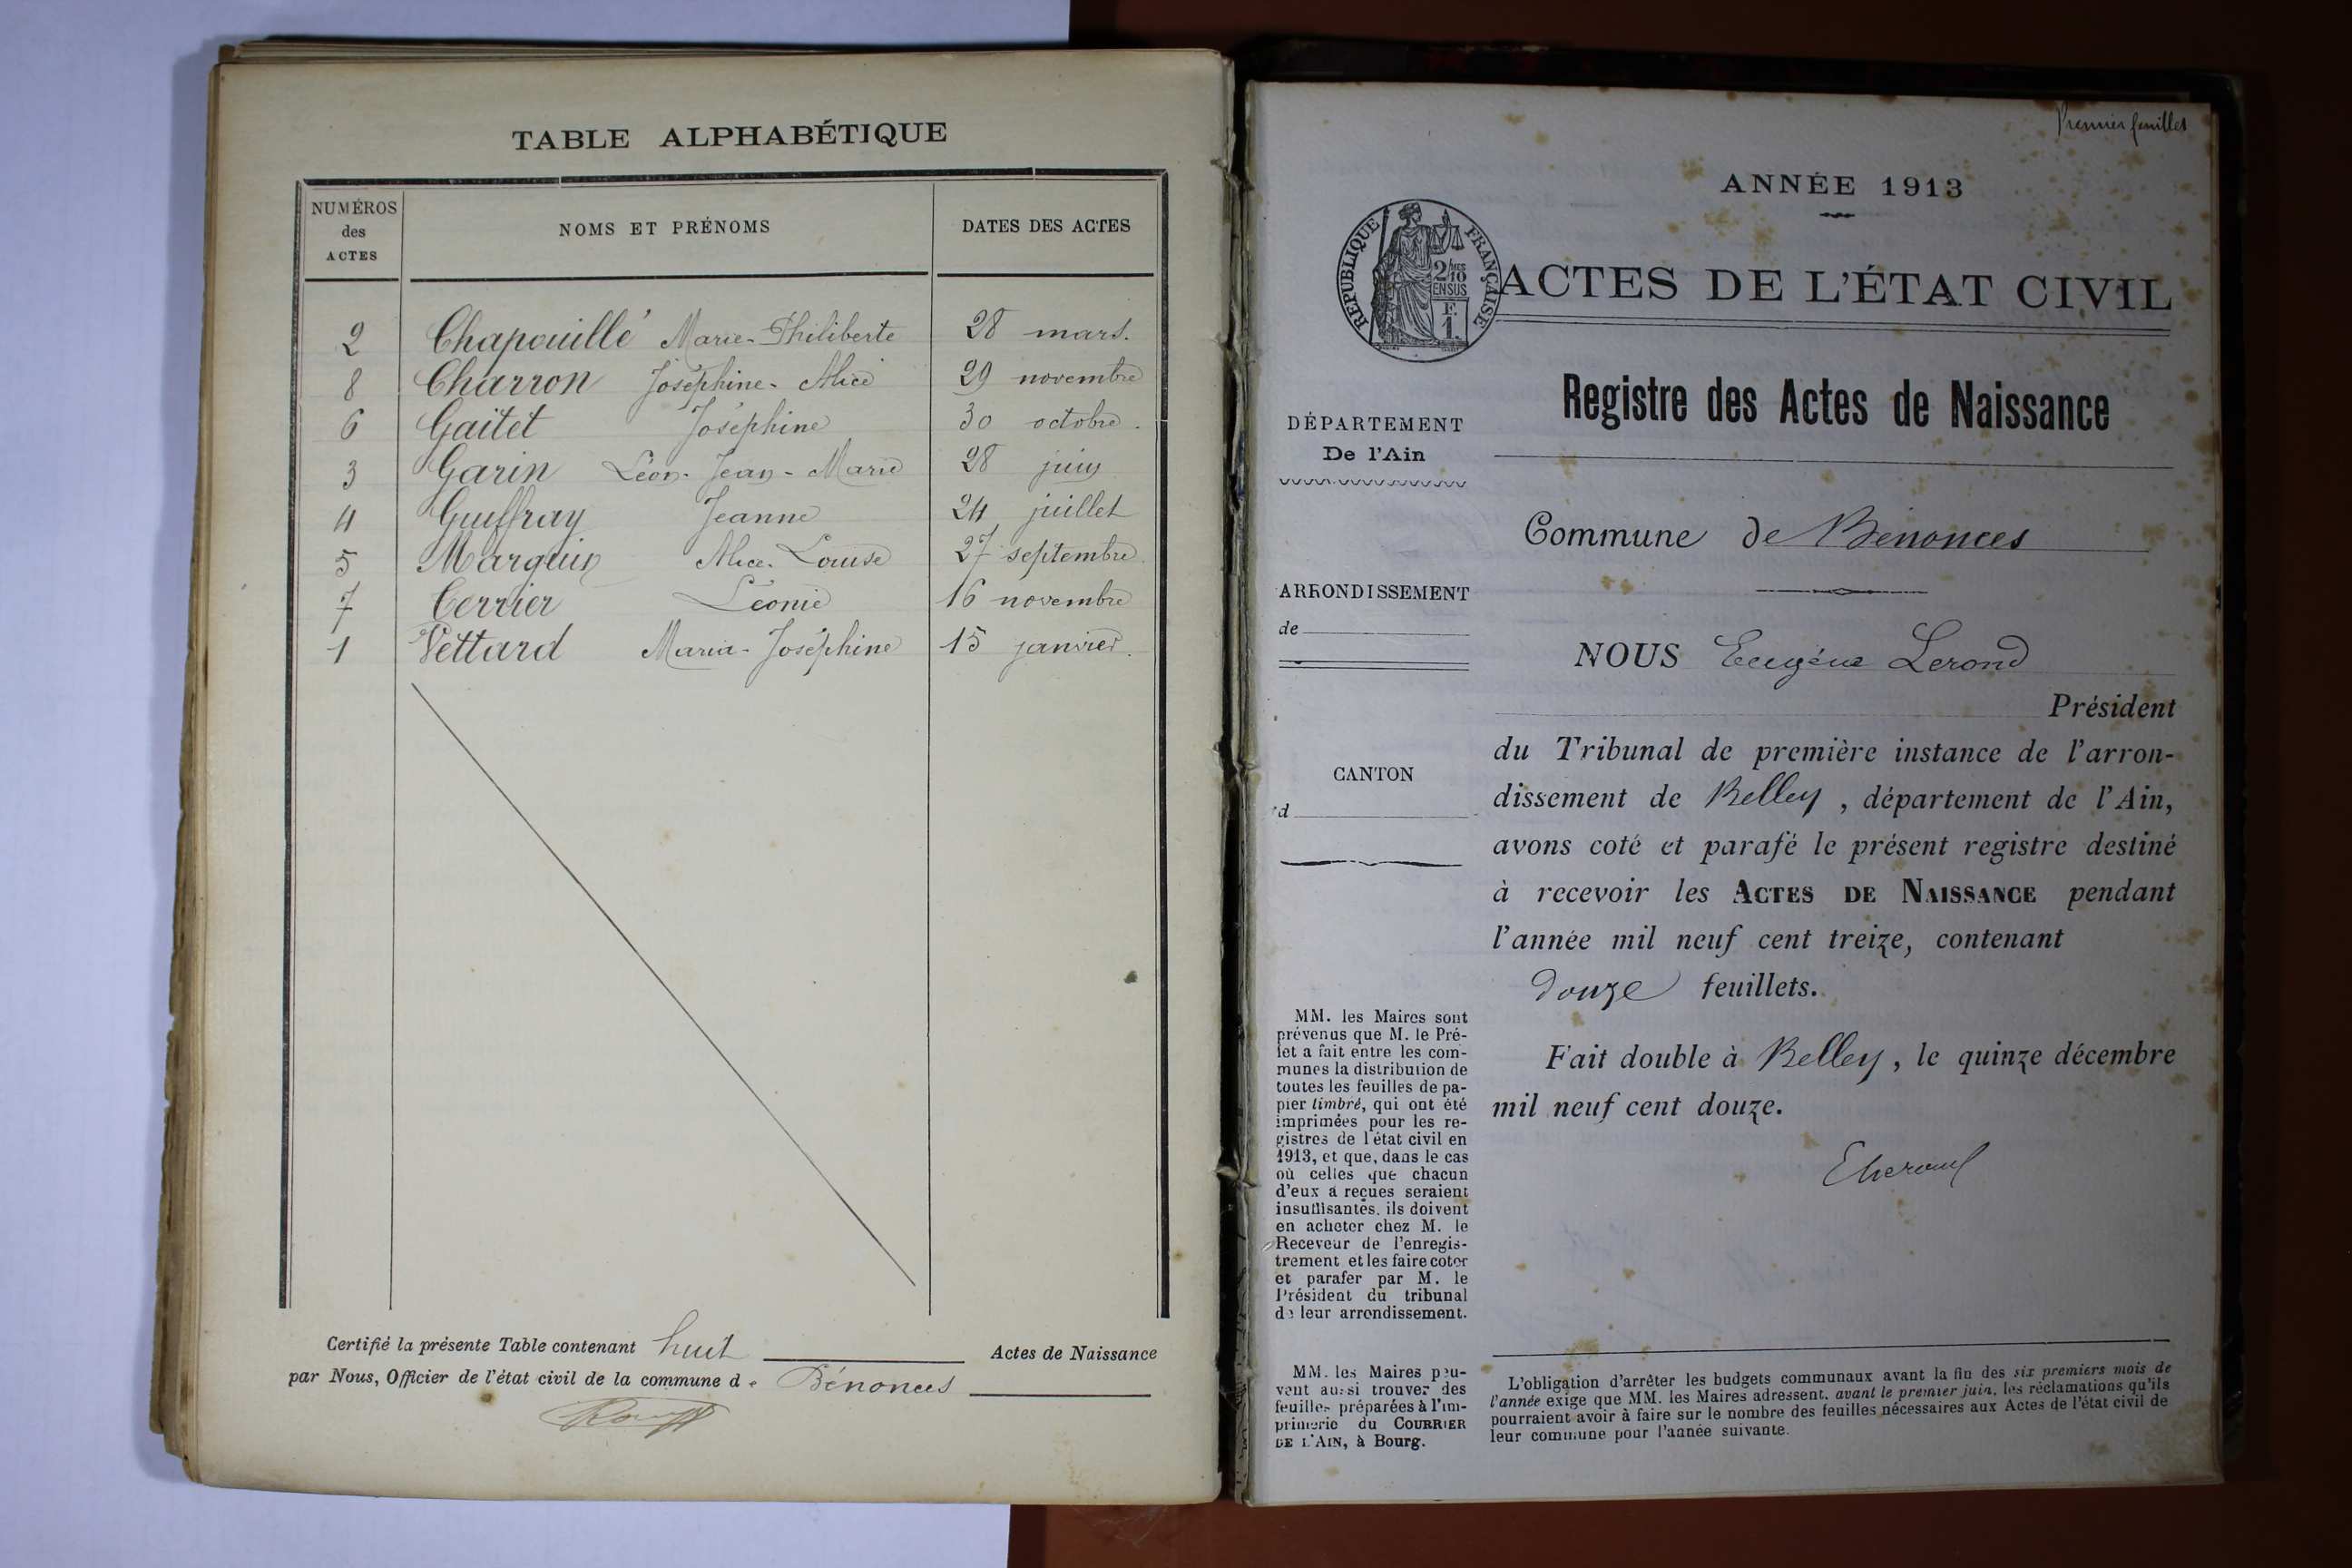 TABLE ALPHABÉTIQUE
NUMÉROS des ACTES NOMS ET PRÉNOMS DATES DES ACTES
2 Chapouillé Marie-Philiberte 28 mars.
8 Charron Joséphine-Alice 29 novembre
6 Gaitet Joséphine 30 octobre.
3 Garin Léon-Jean-Marie 28 juin
4 Guiffray Jeanne 24 juillet
5 Marguin Alice-Louise 27 septembre.
7 Perrier Léonie 16 novembre
1 Vettard Maria-Joséphine 15 janvier.
Certifié la présente Table contenant huit Actes de Naissance
par Nous, Officier de l'état civil de la commune de Bénonces
Premier feuillet
ANNÉE 1913
RÉPUBLIQUE FRANÇAISE
2/10 EN SUS
F. 1.
ACTES DE L'ÉTAT CIVIL
Registre des Actes de Naissance
DÉPARTEMENT
De l'Ain
Commune de Bénonces
ARRONDISSEMENT
de
NOUS Eugène Lerond
Président
du Tribunal de première instance de l'arron-
CANTON
d
dissement de Belley, département de l'Ain,
avons coté et parafé le présent registre destiné
à recevoir les ACTES DE NAISSANCE pendant
l'année mil neuf cent treize, contenant
douze feuillets.
Fait double à Belley, le quinze décembre
mil neuf cent douze.
MM. les Maires sont
prévenus que M. le Pré-
fet a fait entre les com-
munes la distribution de
toutes les feuilles de pa-
pier timbré, qui ont été
imprimées pour les re-
gistres de l'état civil en
1913, et que, dans le cas
où celles que chacun
d'eux a reçues seraient
insuffisantes, ils doivent
en acheter chez M. le
Receveur de l'enregis-
trement et les faire coter
et parafer par M. le
Président du tribunal
de leur arrondissement.
MM. les Maires peu-
vent aussi trouver des
feuilles préparées à l'im-
primerie du COURRIER
DE L'AIN, à Bourg.
L'obligation d'arrêter les budgets communaux avant la fin des six premiers mois de
l'année exige que MM. les Maires adressent, avant le premier juin, les réclamations qu'ils
pourraient avoir à faire sur le nombre des feuilles nécessaires aux Actes de l'état civil de
leur commune pour l'année suivante.